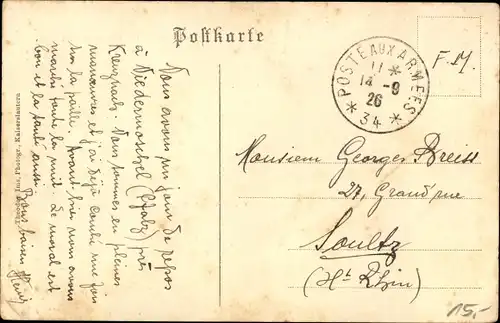 Postkarte
POSTE AUX ARMEES
11
14 - 9
26
* 34 *
F.M.
Monsieur Georges Breiss
27, Grand rue
Soultz
(Ht. Rhin)
Nous avons un jour de repos
à Niedermoschel (Pfalz) près
Kreuznach. Nous sommes en pleines
manœuvres et j'ai déjà couché une fois
sur la paille. Avant-hier nous avons
marché toute la nuit. Le moral est
bon et la santé aussi.
Bons baisers
Henri
Phot. Kaiserslautern
15,-